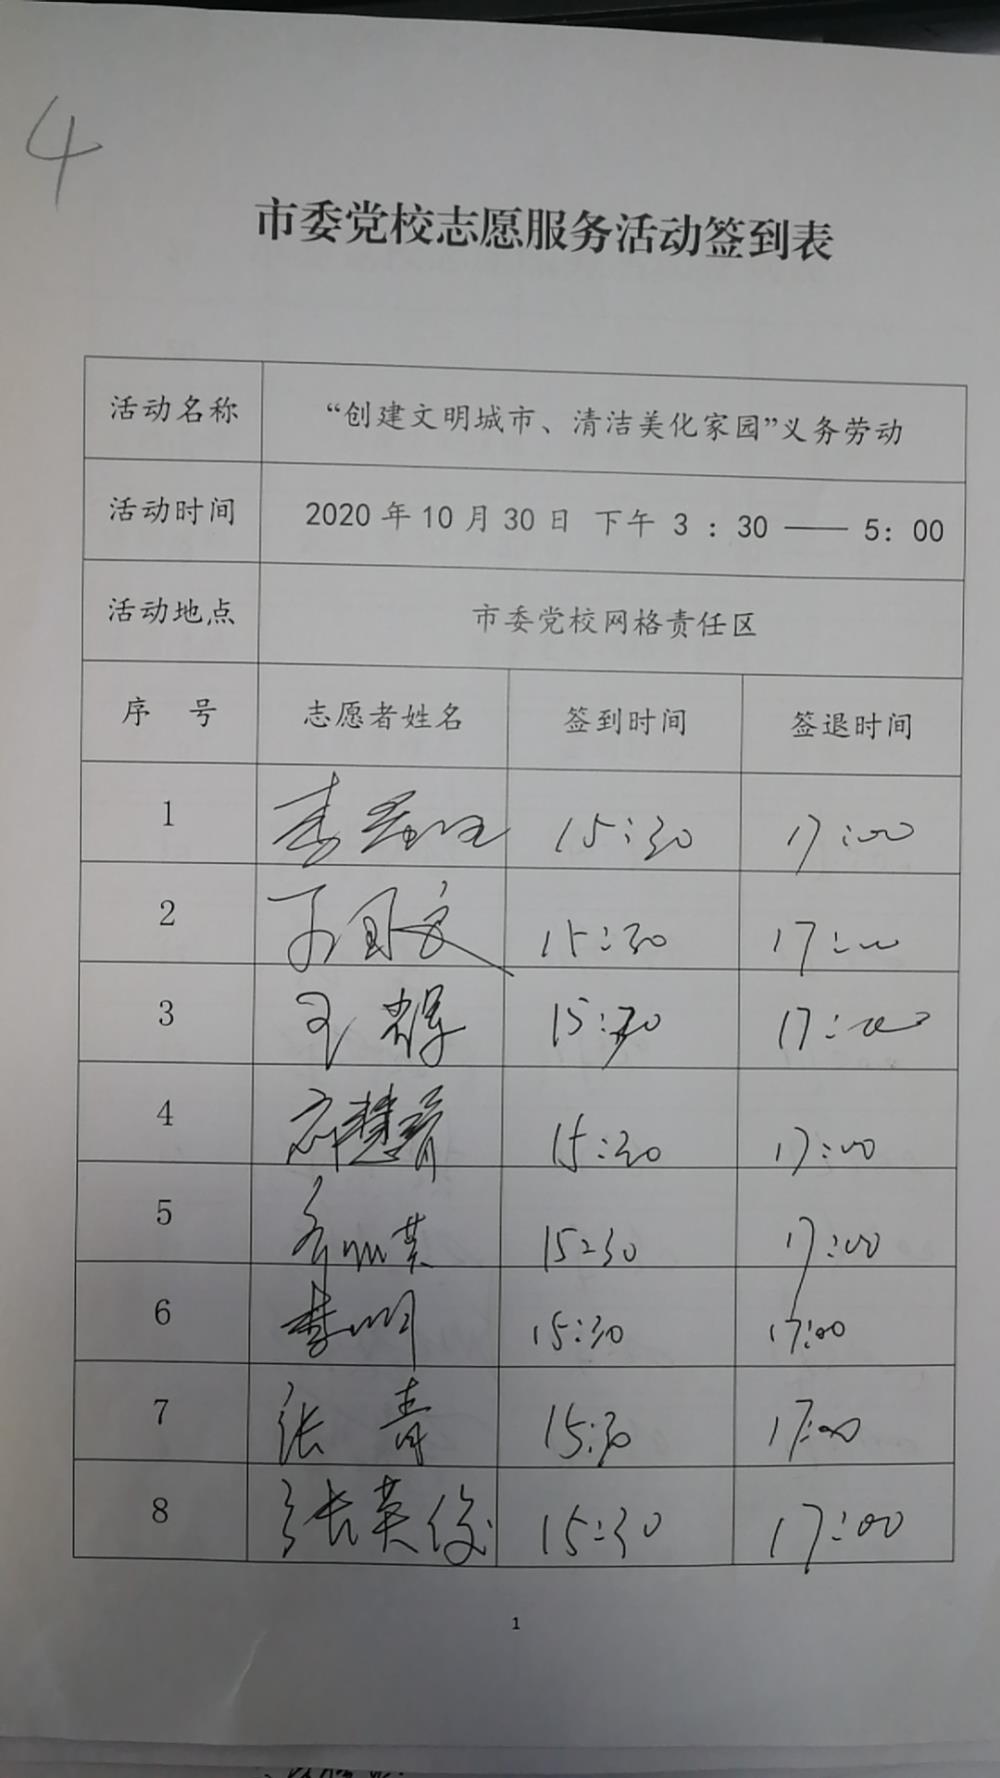 4
市委党校志愿服务活动签到表
活动名称 “创建文明城市、清洁美化家园”义务劳动
活动时间 2020 年 10 月 30 日 下午 3 : 30 —— 5: 00
活动地点 市委党校网格责任区
序 号 志愿者姓名 签到时间 签退时间
1 15:30 17:00
2 15:30 17:00
3 王辉 15:30 17:00
4 15:30 17:00
5 15:30 17:00
6 李明 15:30 17:00
7 张青 15:30 17:00
8 张英俊 15:30 17:00
1